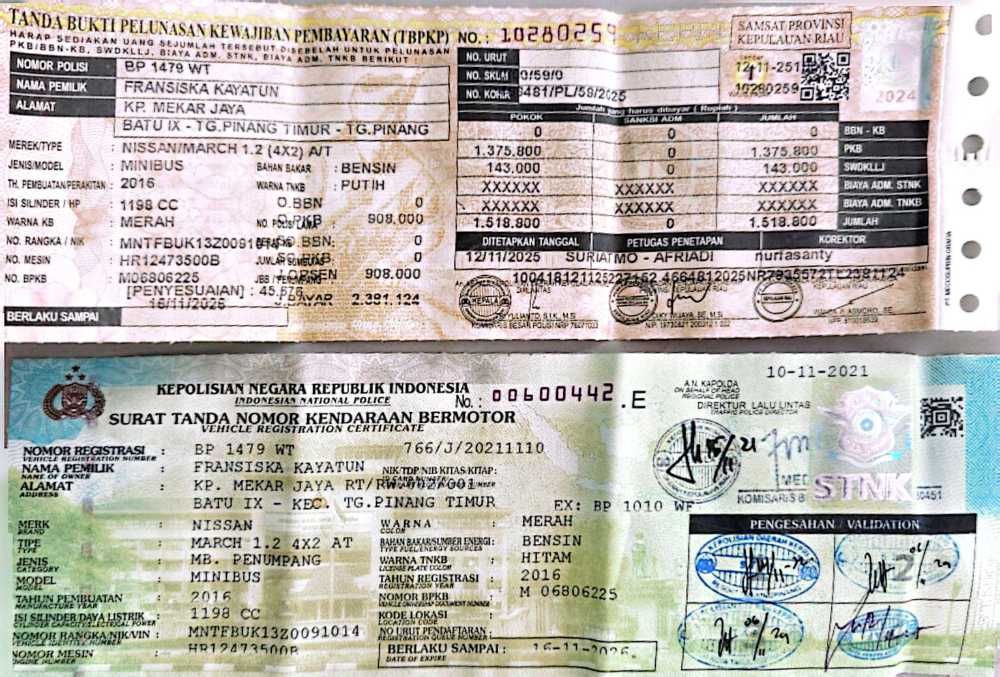 TANDA BUKTI PELUNASAN KEWAJIBAN PEMBAYARAN (TBPKP) NO.: 10280259
HARAP SEDIAKAN UANG SEJUMLAH TERSEBUT DISEBELAH UNTUK PELUNASAN
PKB/BBN-KB, SWDKLLJ, BIAYA ADM. STNK, BIAYA ADM. TNKB BERIKUT
SAMSAT PROVINSI
KEPULAUAN RIAU
12-11-251
10280259
2024
NOMOR POLISI BP 1479 WT
NAMA PEMILIK FRANSISKA KAYATUN
ALAMAT KP. MEKAR JAYA
BATU IX - TG.PINANG TIMUR - TG.PINANG
MEREK/TYPE : NISSAN/MARCH 1.2 (4X2) A/T
JENIS/MODEL : MINIBUS BAHAN BAKAR : BENSIN
TH. PEMBUATAN/PERAKITAN : 2016 WARNA TNKB : PUTIH
ISI SILINDER / HP : 1198 CC O.BBN 0
WARNA KB : MERAH O.PKB 908.000
NO. RANGKA / NIK : MNTFBUK13Z0091014 BSN: 0
NO. MESIN : HR12473500B 0
NO. BPKB : M06806225 OPSEN 908.000
[PENYESUAIAN] : 45.676 BAYAR 2.381.124
16/11/2026
BERLAKU SAMPAI
NO. URUT
NO. SKUM 0/59/0
NO. KOHIR 9481/PL/59/2025
Jumlah yang harus dibayar ( Rupiah )
POKOK SANKSI ADM JUMLAH
0 0 0 BBN - KB
1.375.800 0 1.375.800 PKB
143.000 0 143.000 SWDKLLJ
XXXXXX XXXXXX XXXXXX BIAYA ADM. STNK
XXXXXX XXXXXX XXXXXX BIAYA ADM. TNKB
1.518.800 0 1.518.800 JUMLAH
DITETAPKAN TANGGAL PETUGAS PENETAPAN KOREKTOR
12/11/2025 SURIATMO - AFRIADI nurlasanty
KEPALA
KEPOLISIAN NEGARA REPUBLIK INDONESIA
INDONESIAN NATIONAL POLICE
No.: 00600442.E
SURAT TANDA NOMOR KENDARAAN BERMOTOR
VEHICLE REGISTRATION CERTIFICATE
10-11-2021
A.N. KAPOLDA
ON BEHALF OF HEAD
REGIONAL POLICE
DIREKTUR LALU LINTAS
TRAFFIC POLICE DIRECTOR
KOMISARIS B
STNK
NOMOR REGISTRASI : BP 1479 WT 766/J/20211110
VEHICLE REGISTRATION NUMBER
NAMA PEMILIK : FRANSISKA KAYATUN NIK/TDP/NIB/KITAS/KITAP:
NAME OF OWNER
ALAMAT : KP. MEKAR JAYA RT/RW 002/001
ADDRESS
BATU IX - KEC. TG.PINANG TIMUR EX: BP 1010 WF
MERK : NISSAN WARNA : MERAH
BRAND COLOR
TIPE : MARCH 1.2 4X2 AT BAHAN BAKAR/SUMBER ENERGI : BENSIN
TYPE TYPE FUEL/ENERGY SOURCES
JENIS : MB. PENUMPANG WARNA TNKB : HITAM
CATEGORY LICENSE PLATE COLOR
MODEL : MINIBUS TAHUN REGISTRASI : 2016
MODEL REGISTRATION YEAR
TAHUN PEMBUATAN : 2016 NOMOR BPKB : M 06806225
MANUFACTURE YEAR VEHICLE OWNERSHIP DOCUMENT NUMBER
ISI SILINDER/DAYA LISTRIK : 1198 CC KODE LOKASI :
CYLINDER CAPACITY/ELECTRICAL POWER LOCATION CODE
NOMOR RANGKA/NIK/VIN : MNTFBUK13Z0091014 NO URUT PENDAFTARAN :
VEHICLE IDENTITY NUMBER REGISTRATION QUEUE NUMBER
NOMOR MESIN : HR12473500B BERLAKU SAMPAI : 16-11-2026
ENGINE NUMBER DATE OF EXPIRE
PENGESAHAN / VALIDATION